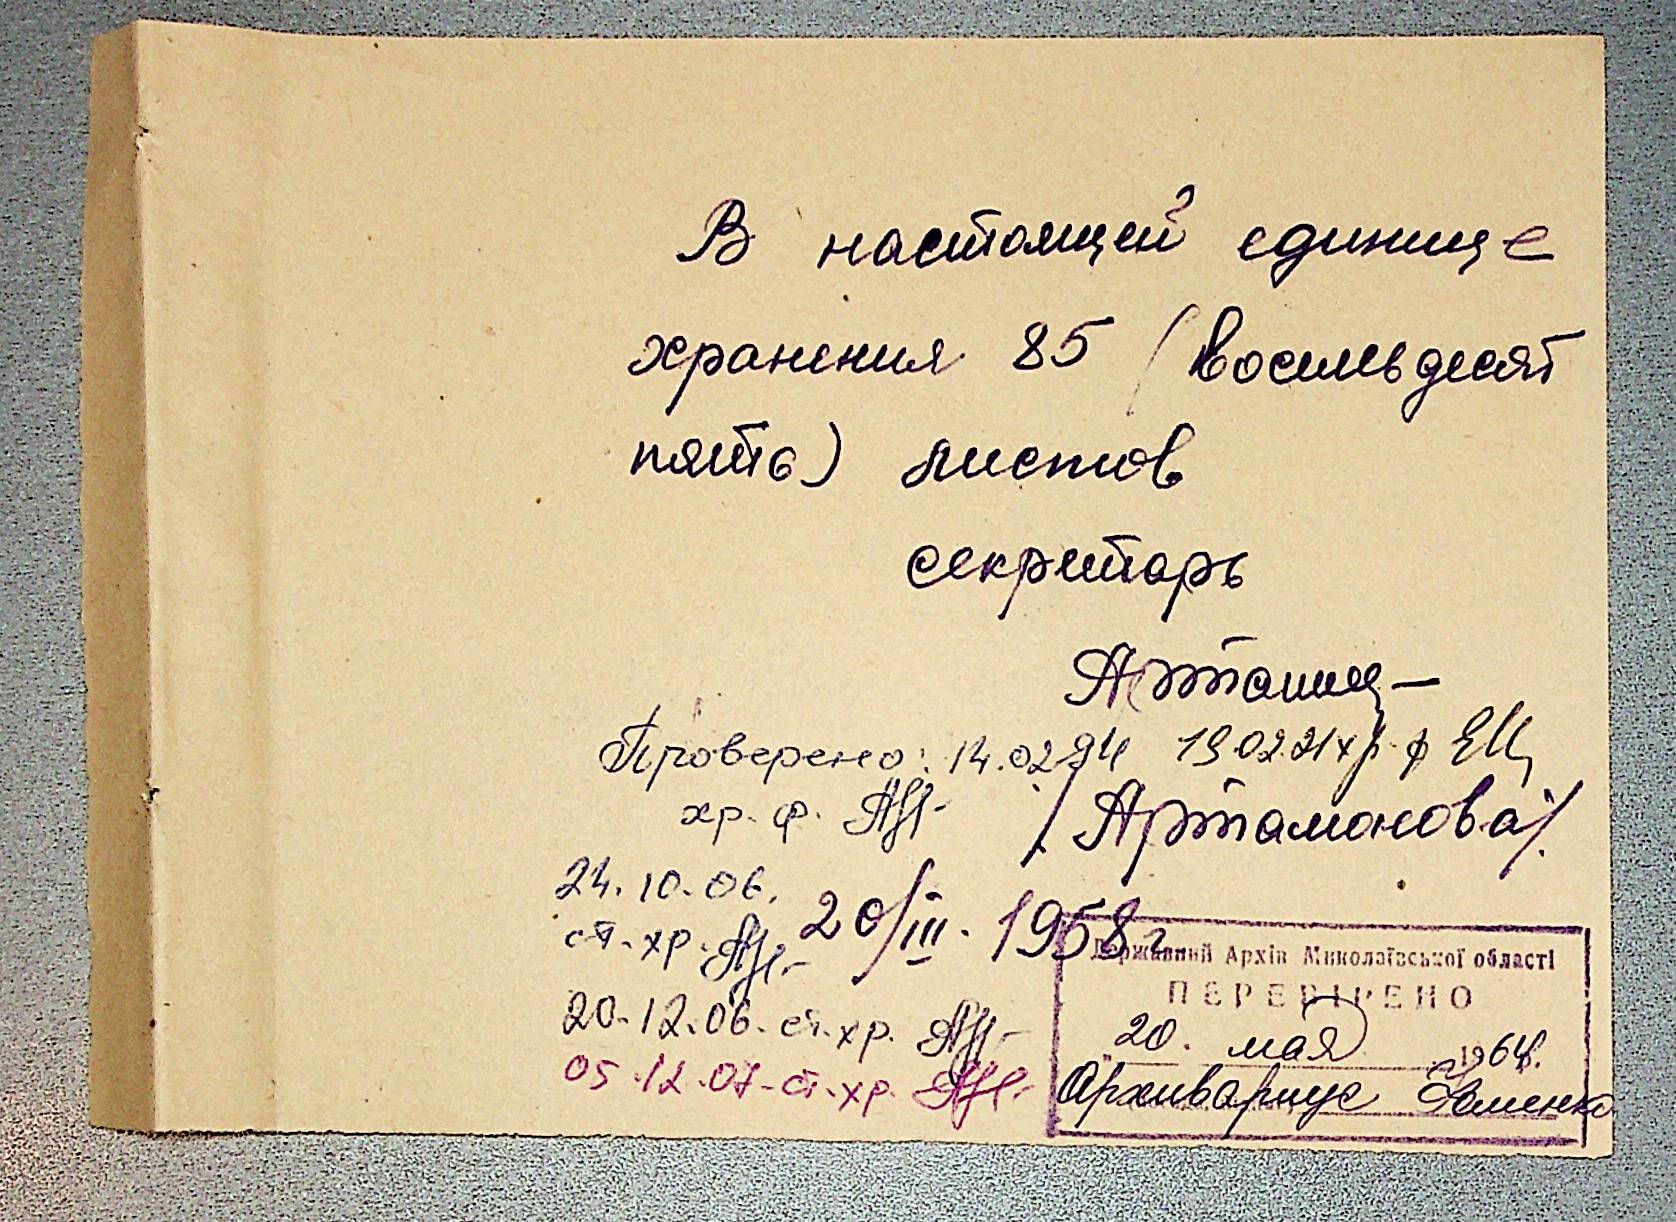 В настоящей единице
хранения 85 (восемьдесят
пять) листов
секретарь
Проверено: 14.02.94 19.02.21 хр. ф
хр. ф.
/Артамонова/.
24.10.06.
ст. хр.
20/III. 1958 г.
Державний Архів Миколаївської області
ПЕРЕВІРЕНО
20. мая 1964.
20.12.06. ст. хр.
05.12.07. ст. хр.
Архивариус Евменко